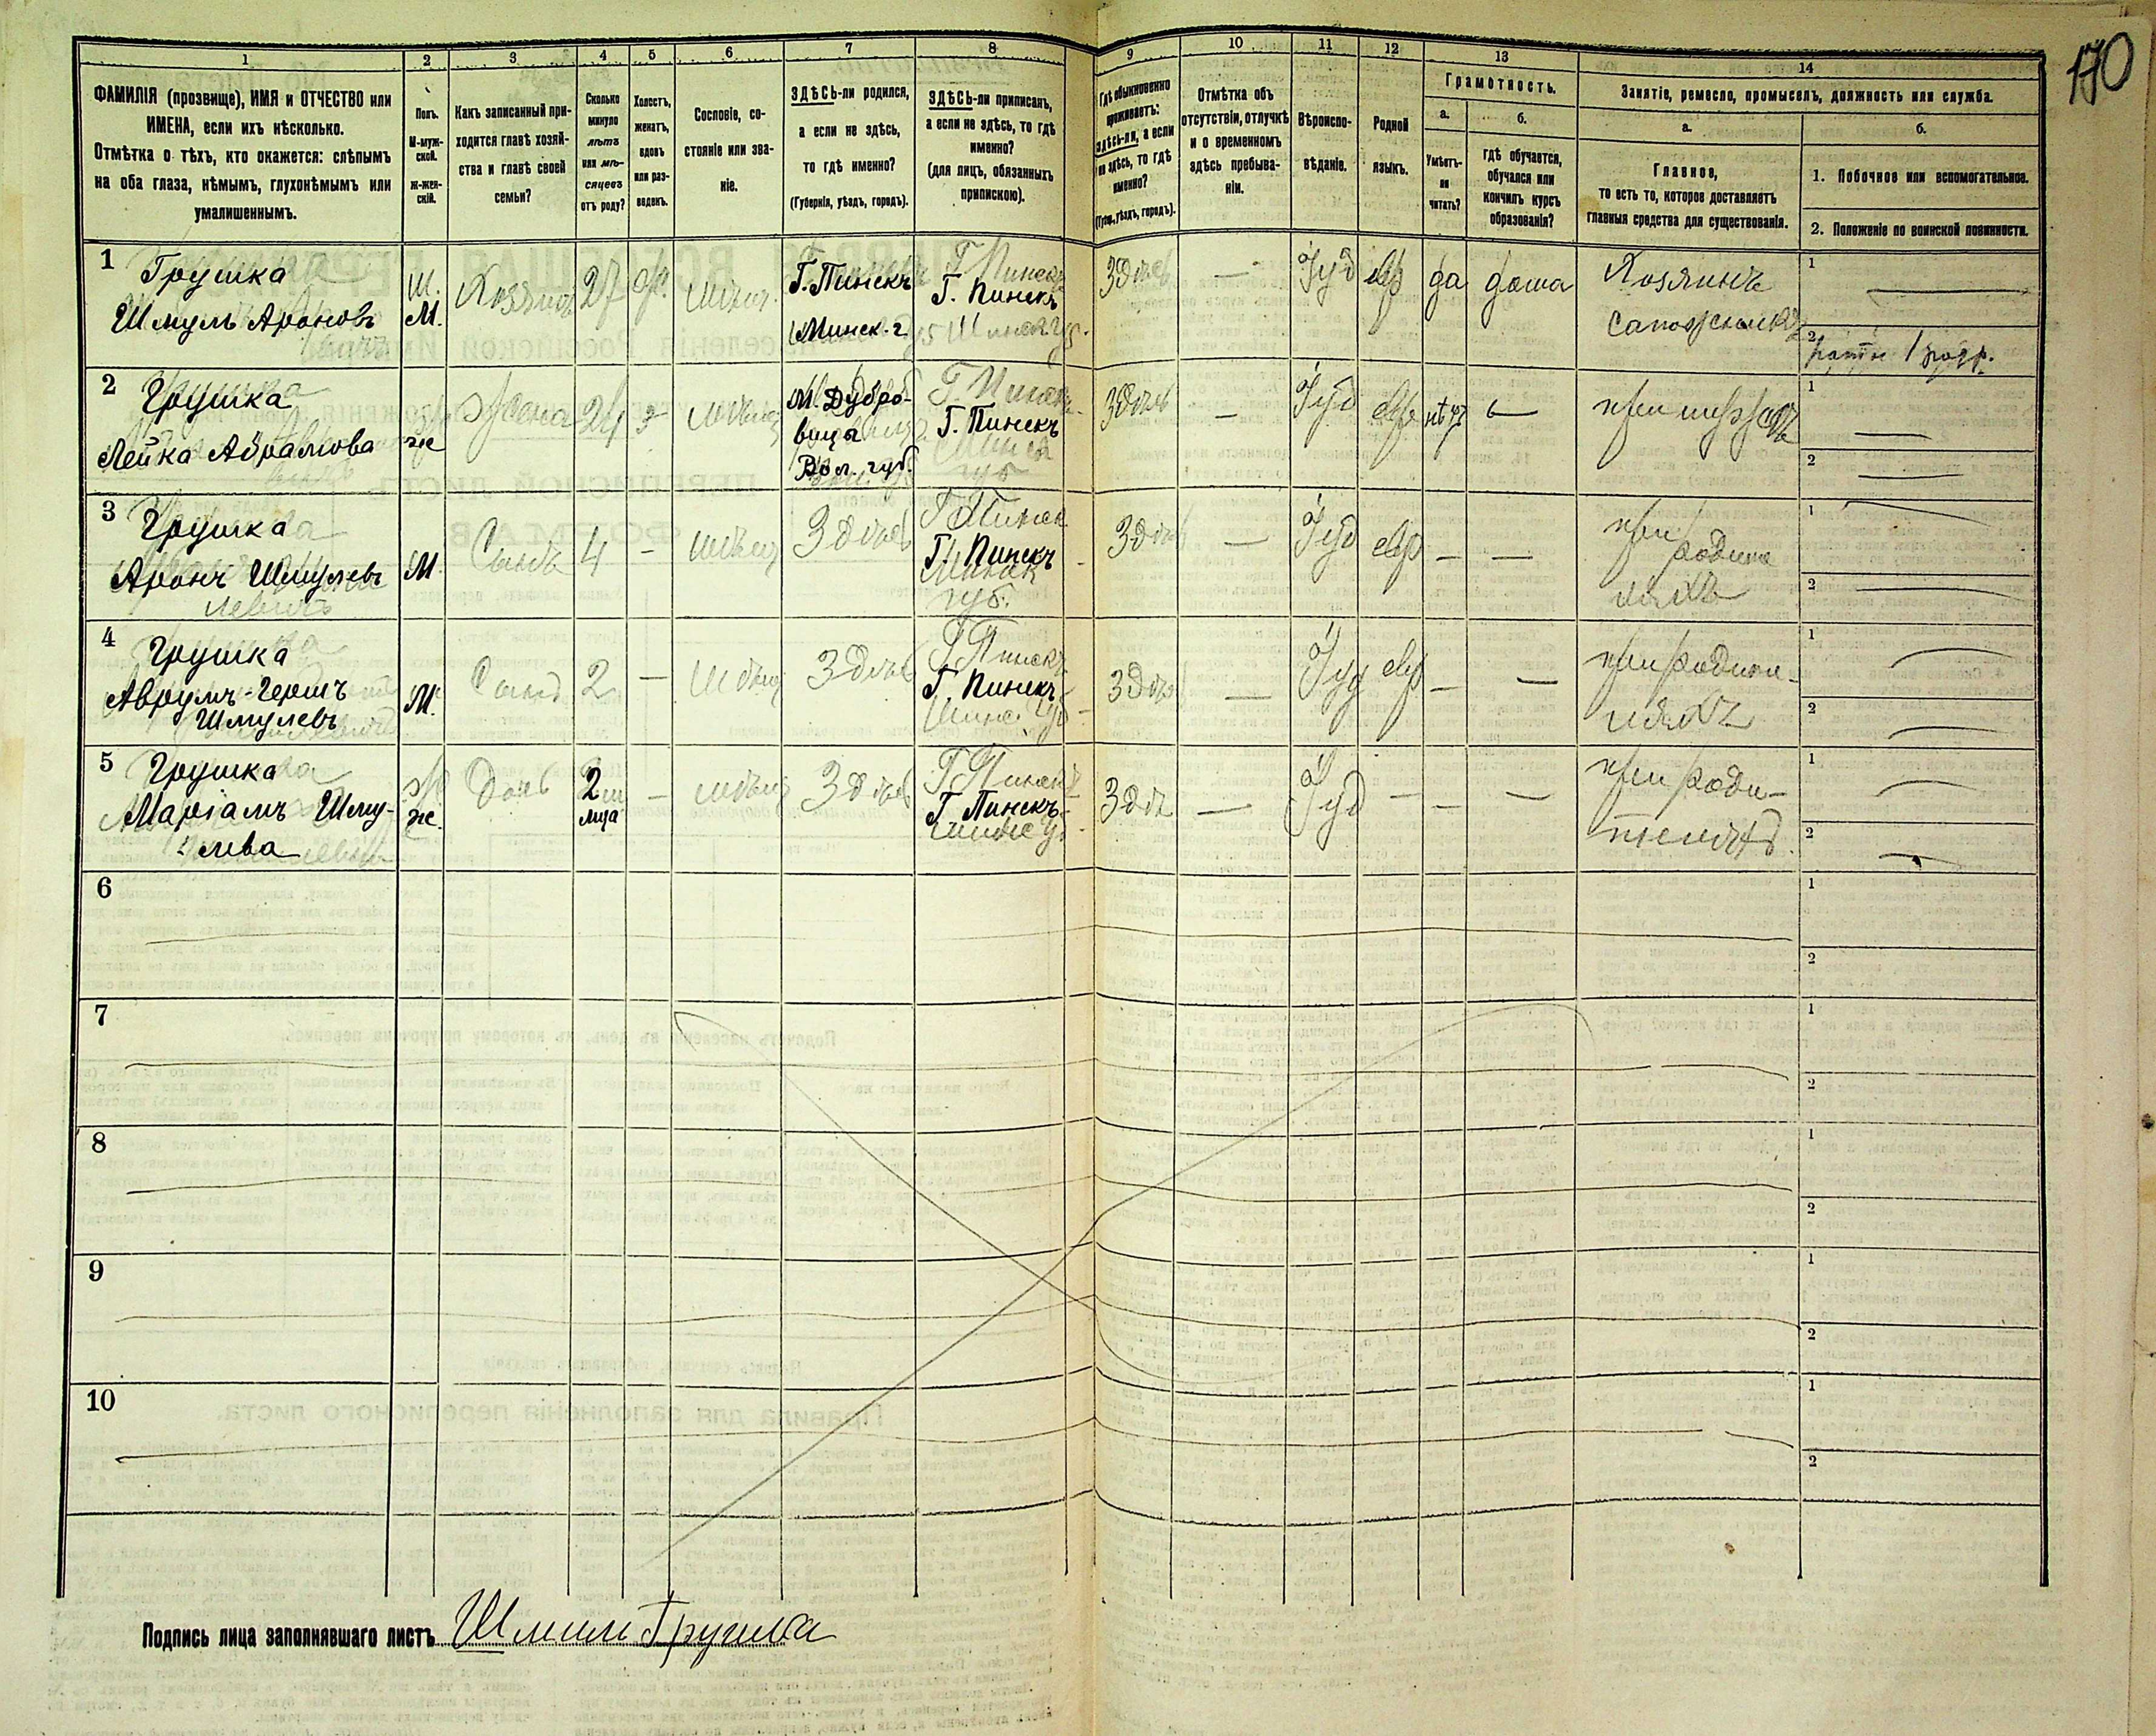 170
1 2 3 4 5 6 7 8 9 10 11 12 13 14
ФАМИЛІЯ (прозвище), ИМЯ и ОТЧЕСТВО или
ИМЕНА, если ихъ нѣсколько.
Отмѣтка о тѣхъ, кто окажется: слѣпымъ
на оба глаза, нѣмымъ, глухонѣмымъ или
умалишеннымъ.
Полъ.
М-муж-
ской.
ж-жен-
скій.
Какъ записанный при-
ходится главѣ хозяй-
ства и главѣ своей
семьи?
Сколько
минуло
лѣтъ
или мѣ-
сяцевъ
отъ роду?
Холостъ,
женатъ,
вдовъ
или раз-
веденъ.
Сословіе, со-
стояніе или зва-
ніе.
ЗДѢСЬ-ли родился,
а если не здѣсь,
то гдѣ именно?
(Губернія, уѣздъ, городъ).
ЗДѢСЬ-ли приписанъ,
а если не здѣсь, то гдѣ
именно?
(для лицъ, обязанныхъ
припискою).
Гдѣ обыкновенно
проживаетъ:
здѣсь-ли, а если
не здѣсь, то гдѣ
именно?
(Губ., уѣздъ, городъ).
Отмѣтка объ
отсутствіи, отлучкѣ
и о временномъ
здѣсь пребыва-
ніи.
Вѣроиспо-
вѣданіе.
Родной
языкъ.
Грамотность.
а.
Умѣетъ-
ли
читать?
б.
гдѣ обучается,
обучался или
кончилъ курсъ
образованія?
Занятіе, ремесло, промыселъ, должность или служба.
а.
Главное,
то есть то, которое доставляетъ
главныя средства для существованія.
б.
1. Побочное или вспомогательное.
2. Положеніе по воинской повинности.
1
Грушка
Шмуль Ароновъ
М.
Хозяинъ
27
Г. Пинскъ
Минск. г.
Г. Пинскъ
Здѣсь
—
Іуд
евр
да
дома
Хозяинъ
сапожникъ
1
—
2
2
Грушка
Лейка Абрамова
же
жена
24
з
М. Дубро-
вица
Вол. губ.
Г. Пинскъ
Здѣсь
—
Іуд
евр
нѣтъ
—
при мужѣ
1
—
2
—
3
Грушка
Аронъ Шмулевъ
М.
Сынъ
4
—
Здѣсь
Г. Пинскъ
Здѣсь
—
Іуд
евр
—
—
при
родите
ляхъ
1
2
4
Грушка
Аврумъ-Гершъ
Шмулевъ
М.
Сынъ
2
—
Здѣсь
Г. Пинскъ
Здѣсь
—
Іуд
евр
—
—
при родите-
ляхъ
1
2
5
Грушка
Маріамъ Шму-
лева
же.
Дочь
2
мца
—
Здѣсь
Г. Пинскъ
Здѣсь
—
Іуд
—
—
—
при роди-
теляхъ
1
2
6
1
2
7
1
2
8
1
2
9
1
2
10
1
2
Подпись лица заполнявшаго листъ Шмуль Грушка